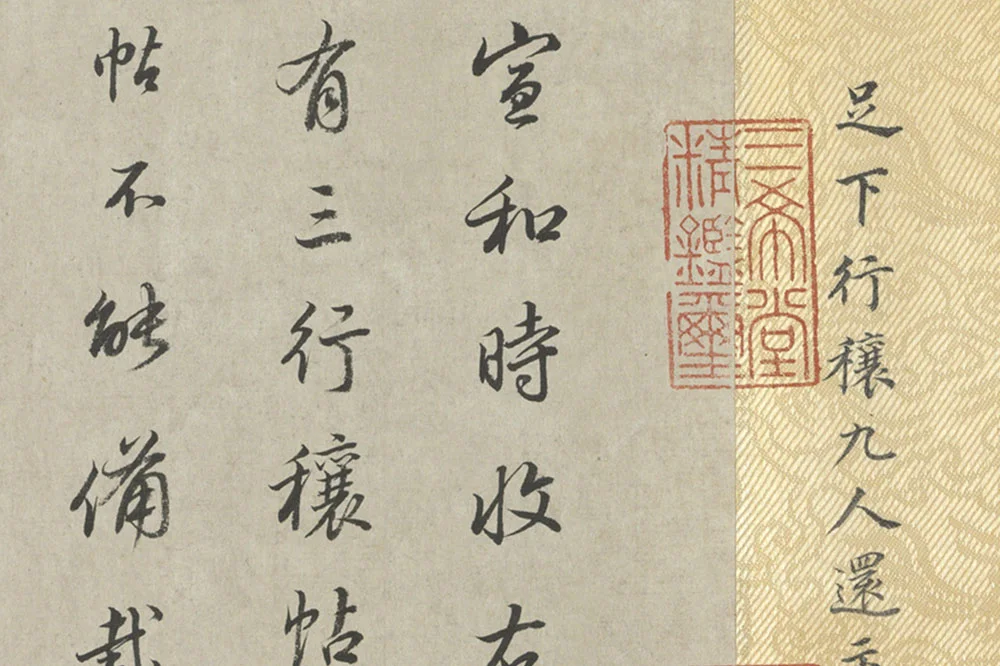 足下行穰九人還示
三希堂
精鑑璽
宣和時收右
有三行穰帖
帖不能備載